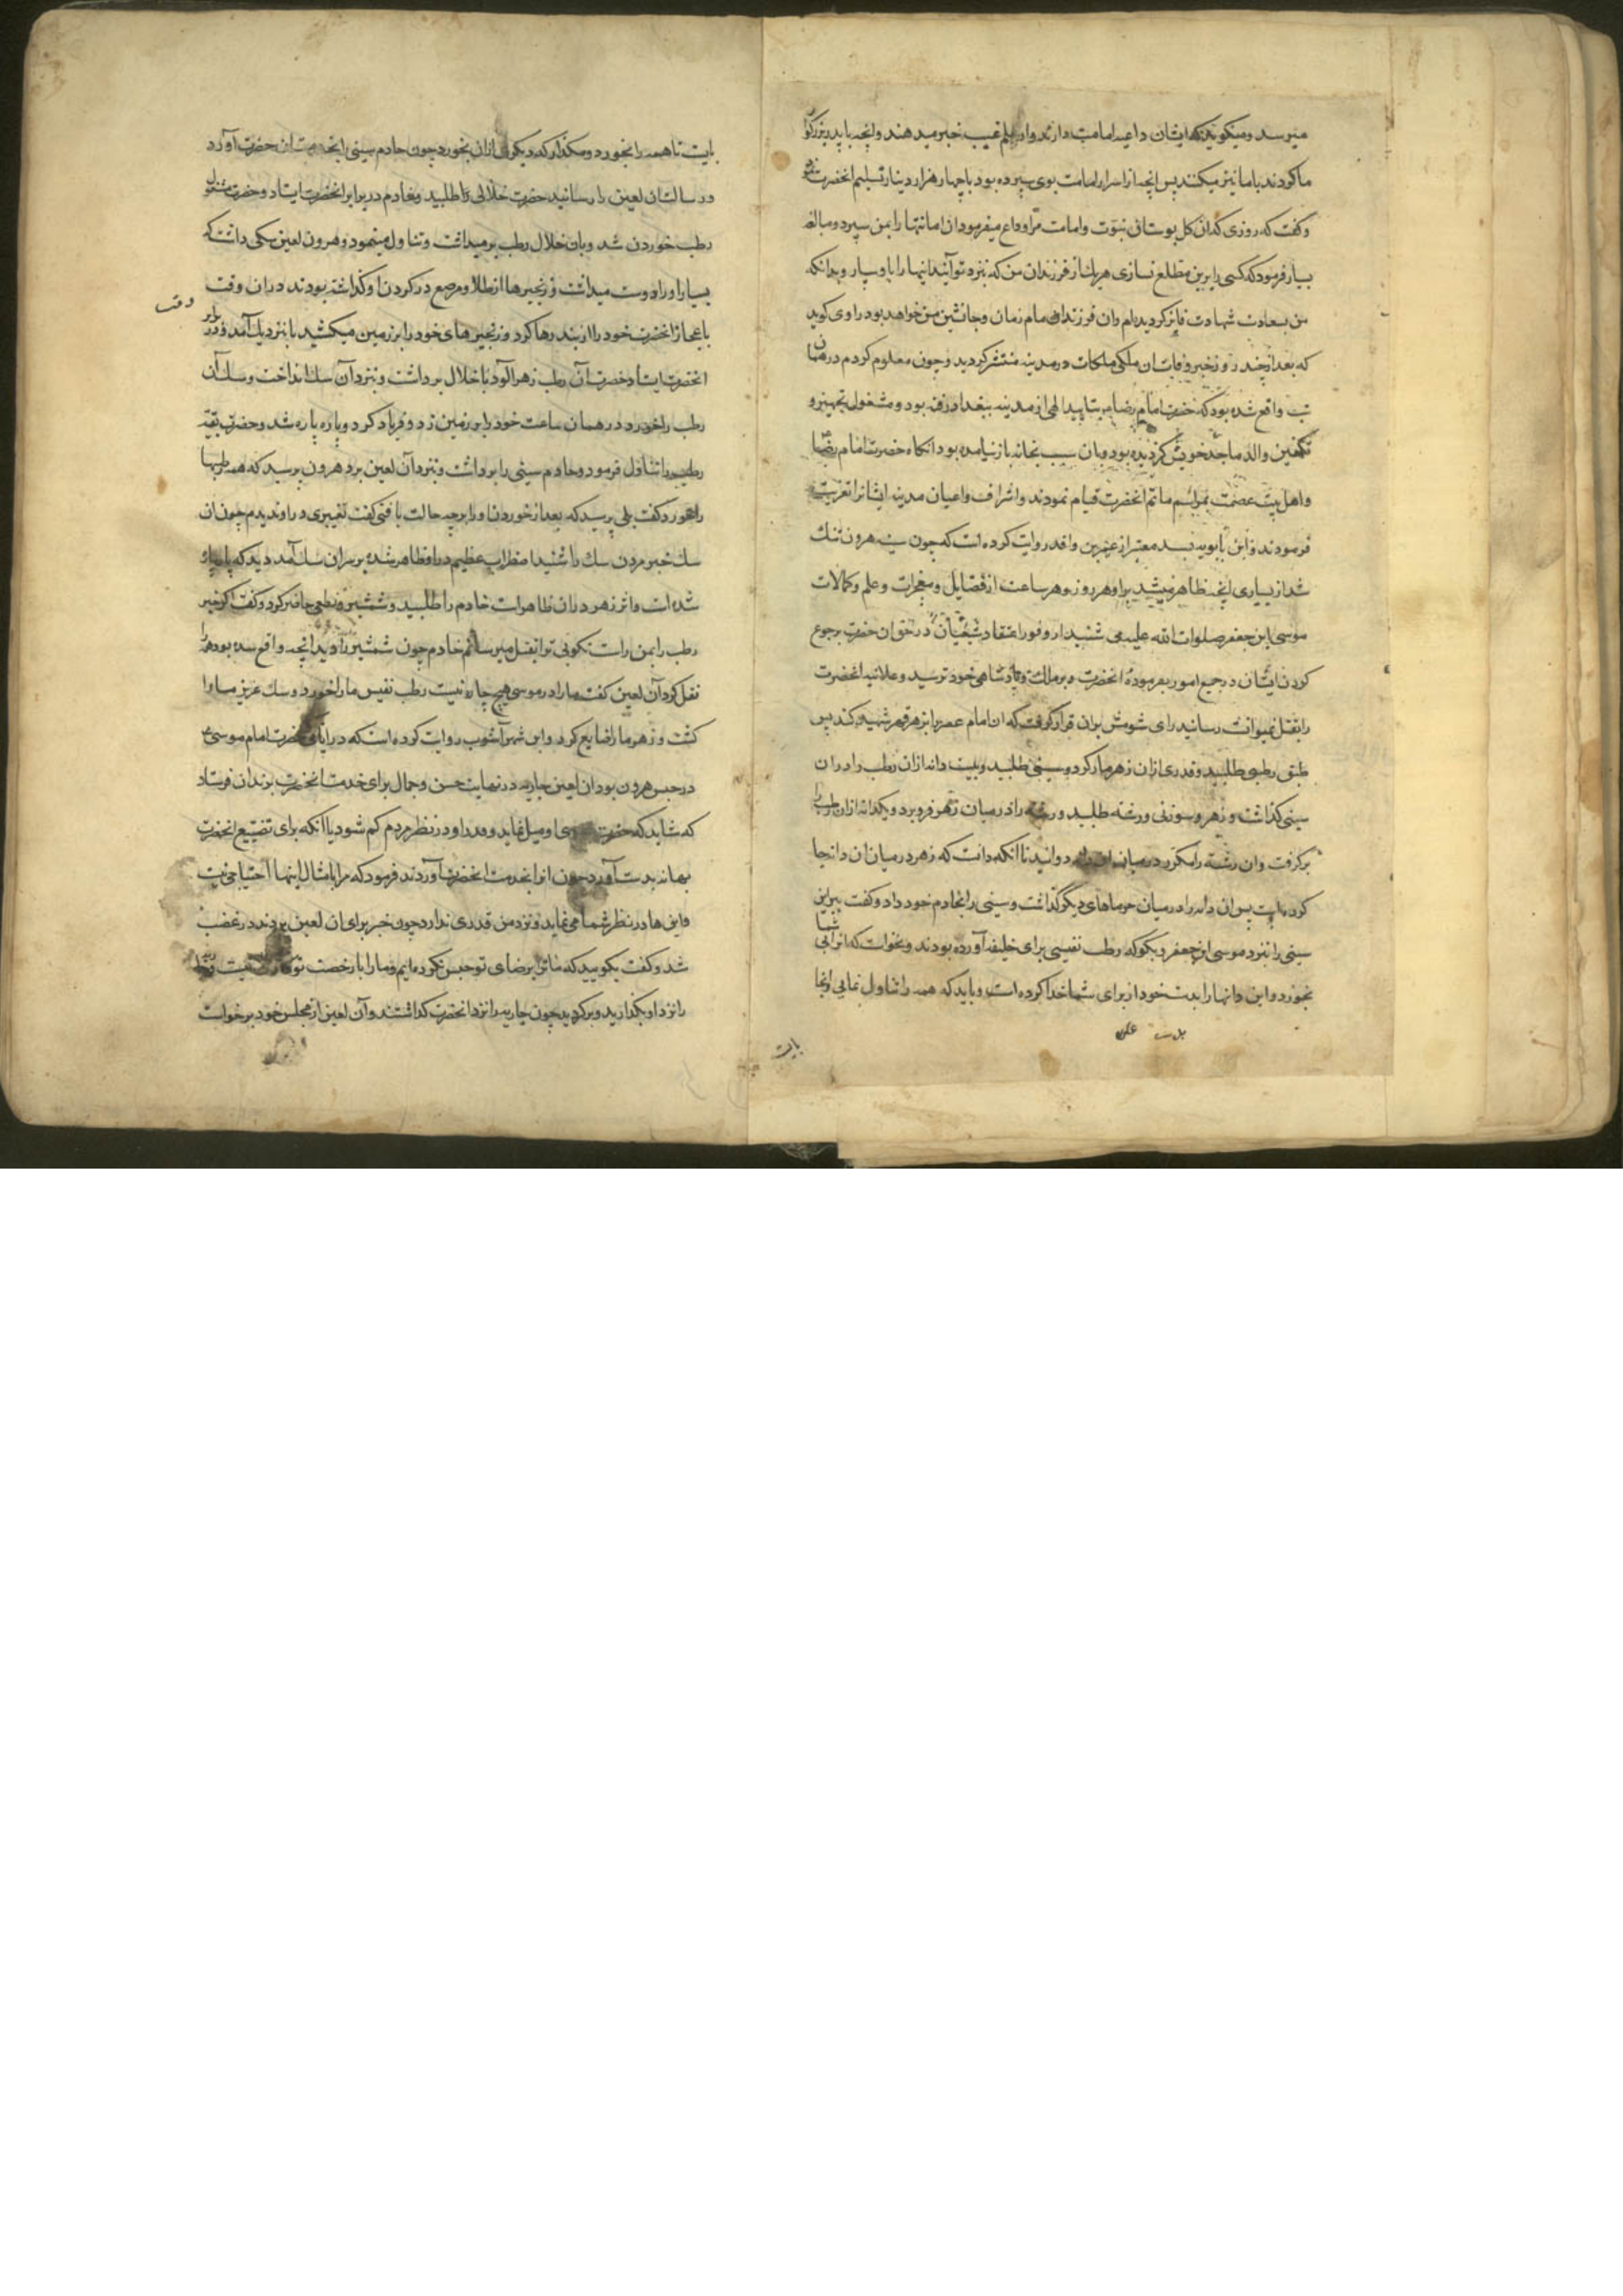 میرسد و میکویند که ایشان داعیه امامت دارند و از علم غیب خبر میدهند و انچه با پدر بزرکوار
ما کردند با ما نیز میکنند پس انچه از اسرار امامت بوی سپرده بود با چهار هزار دینار تسلیم انحضرت نمود
و کفت که روزی که ان کل بوستان نبوت و امامت مرا وداع میفرمود ان امانتها را بمن سپرد و مبالغه
بسیار فرمود که کسی را برین مطلع نسازی هر یک از فرزندان من که نزد تو آیند اینها را باو بسپار و بدانکه
من بسعادت شهادت فایز کردیده‌ام و ان فرزند امام زمان و جانشین من خواهد بود راوی کوید
که بعد از چند روز خبر وفات ان ملکی ملکات در مدینه منتشر کردید و چون معلوم کردم در همان
شب واقع شده بود که حضرت امام رضا بتایید الهی از مدینه ببغداد رفته بود و مشغول تجهیز و
تکفین والد ماجد خویش کردیده بود و بان سبب بخانه باز نیامده بود انکاه حضرت امام رضا
و اهل بیت عصمت بمراسم ماتم انحضرت قیام نمودند و اشراف و اعیان مدینه ایشانرا تعزیت
فرمودند و ابن بابویه بسند معتبر از عمر بن واقد روایت کرده است که چون سینه هرون تنک
شد از بسیاری انچه ظاهر میشد بر او هر روز و هر ساعت از فضایل و معجزات و علم و کمالات
موسی ابن جعفر صلوات الله علیه می شنید از وفور اعتقاد شیعیان در حق ان حضرت و رجوع
کردن ایشان در جمیع امور بفرمودهٔ انحضرت و بر ملک و پادشاهی خود ترسید و علانیه انحضرت
را بقتل نمیتوانست رسانید رای شومش بران قرار کرفت که ان امام عصر را بزهر قهر شهید کند پس
طبق رطبی طلبید و قدری ازان زهر مار کرد و سینی طلبید و بیست دانه ازان رطب را در ان
سینی کذاشت و زهر و سوزنی و رشته طلبید و رشته را در میان زهر فرو برد و یکدانه ازان رطب را
برکرفت و ان رشته را مکرر در میان ان دانه دوانید تا انکه دانست که زهر در میان ان دانه جا
کرده است پس ان دانه را در میان خرماهای دیکر کذاشت و سینی را بخادم خود داد و کفت ببر این
سینی را نزد موسی ابن جعفر و بکو که رطب نفیسی برای خلیفه آورده بودند و نخواست که انرا بی شما
بخورد و این دانها را بدست خود از برای شما جدا کرده است و باید که همه را تناول نمایی و انجا
بایست
بایست تا همه را بخورد و مکذار که دیکری ازان بخورد چون خادم سینی را بخدمت ان حضرت آورد
و رسالت ان لعین را رسانید حضرت خلالی را طلبید و خادم در برابر انحضرت ایستاد و حضرت مشغول
رطب خوردن شد و بان خلال رطب بر میداشت و تناول مینمود و هرون لعین سکی داشت که
بسیار او را دوست میداشت و زنجیرها از طلا و مرصع در کردن او کذاشته بودند در ان وقت
باعجاز انحضرت خود را از بند رها کرد و زنجیرهای خود را بر زمین میکشید تا نزدیک آمد و در برابر
انحضرت ایستاد حضرت آن رطب زهرآلود با خلال برداشت و نزد آن سک انداخت و سک آن
رطب را خورد در همان ساعت خود را بر زمین زد و فریاد کرد و پاره پاره شد و حضرت بقیه
رطب را تناول فرمود و خادم سینی را برداشت و نزد آن لعین برد هرون پرسید که همه رطبها
را خورد کفت بلی پرسید که بعد از خوردن او را بر چه حالت یافتی کفت تغییری در او ندیدم چون ان
سک خبر مردن سک را شنید اضطراب عظیم در او ظاهر شد و بر سر ان سک آمد دید که پاره پاره
شده است و اثر زهر در ان ظاهر است خادم را طلبید و شمشیر و نطعی حاضر کرد و کفت اکر خبر
رطب را بمن راست نکویی ترا بقتل میرسانم خادم چون شمشیر را دید انچه واقع شده بود همه را
نقل کرد آن لعین کفت ما را در موسی هیچ چاره نیست رطب نفیس ما را خورد و سک عزیز ما را
کشت و زهر ما را ضایع کرد و ابن شهر آشوب روایت کرده است که در ایامی که حضرت امام موسی
در حبس هرون بود ان لعین جاریه در نهایت حسن و جمال برای خدمت انحضرت بزندان فرستاد
که شاید که حضرت بسوی او میل نماید و قدر او در نظر مردم کم شود یا انکه برای تضییع انحضرت
بهانه بدست آورد چون او را بخدمت انحضرت آوردند فرمود که مرا بامثال اینها احتیاجی نیست
و این ها در نظر شما می نماید و نزد من قدری ندارد چون خبر برای ان لعین بردند در غضب
شد و کفت بکویید که ما ترا برضای تو حبس نکرده ایم و ما را با رخصت تو کاری نیست
را نزد او بکذارید و برکردید چون جاریه را نزد انحضرت کذاشتند و آن لعین از مجلس خود برخواست